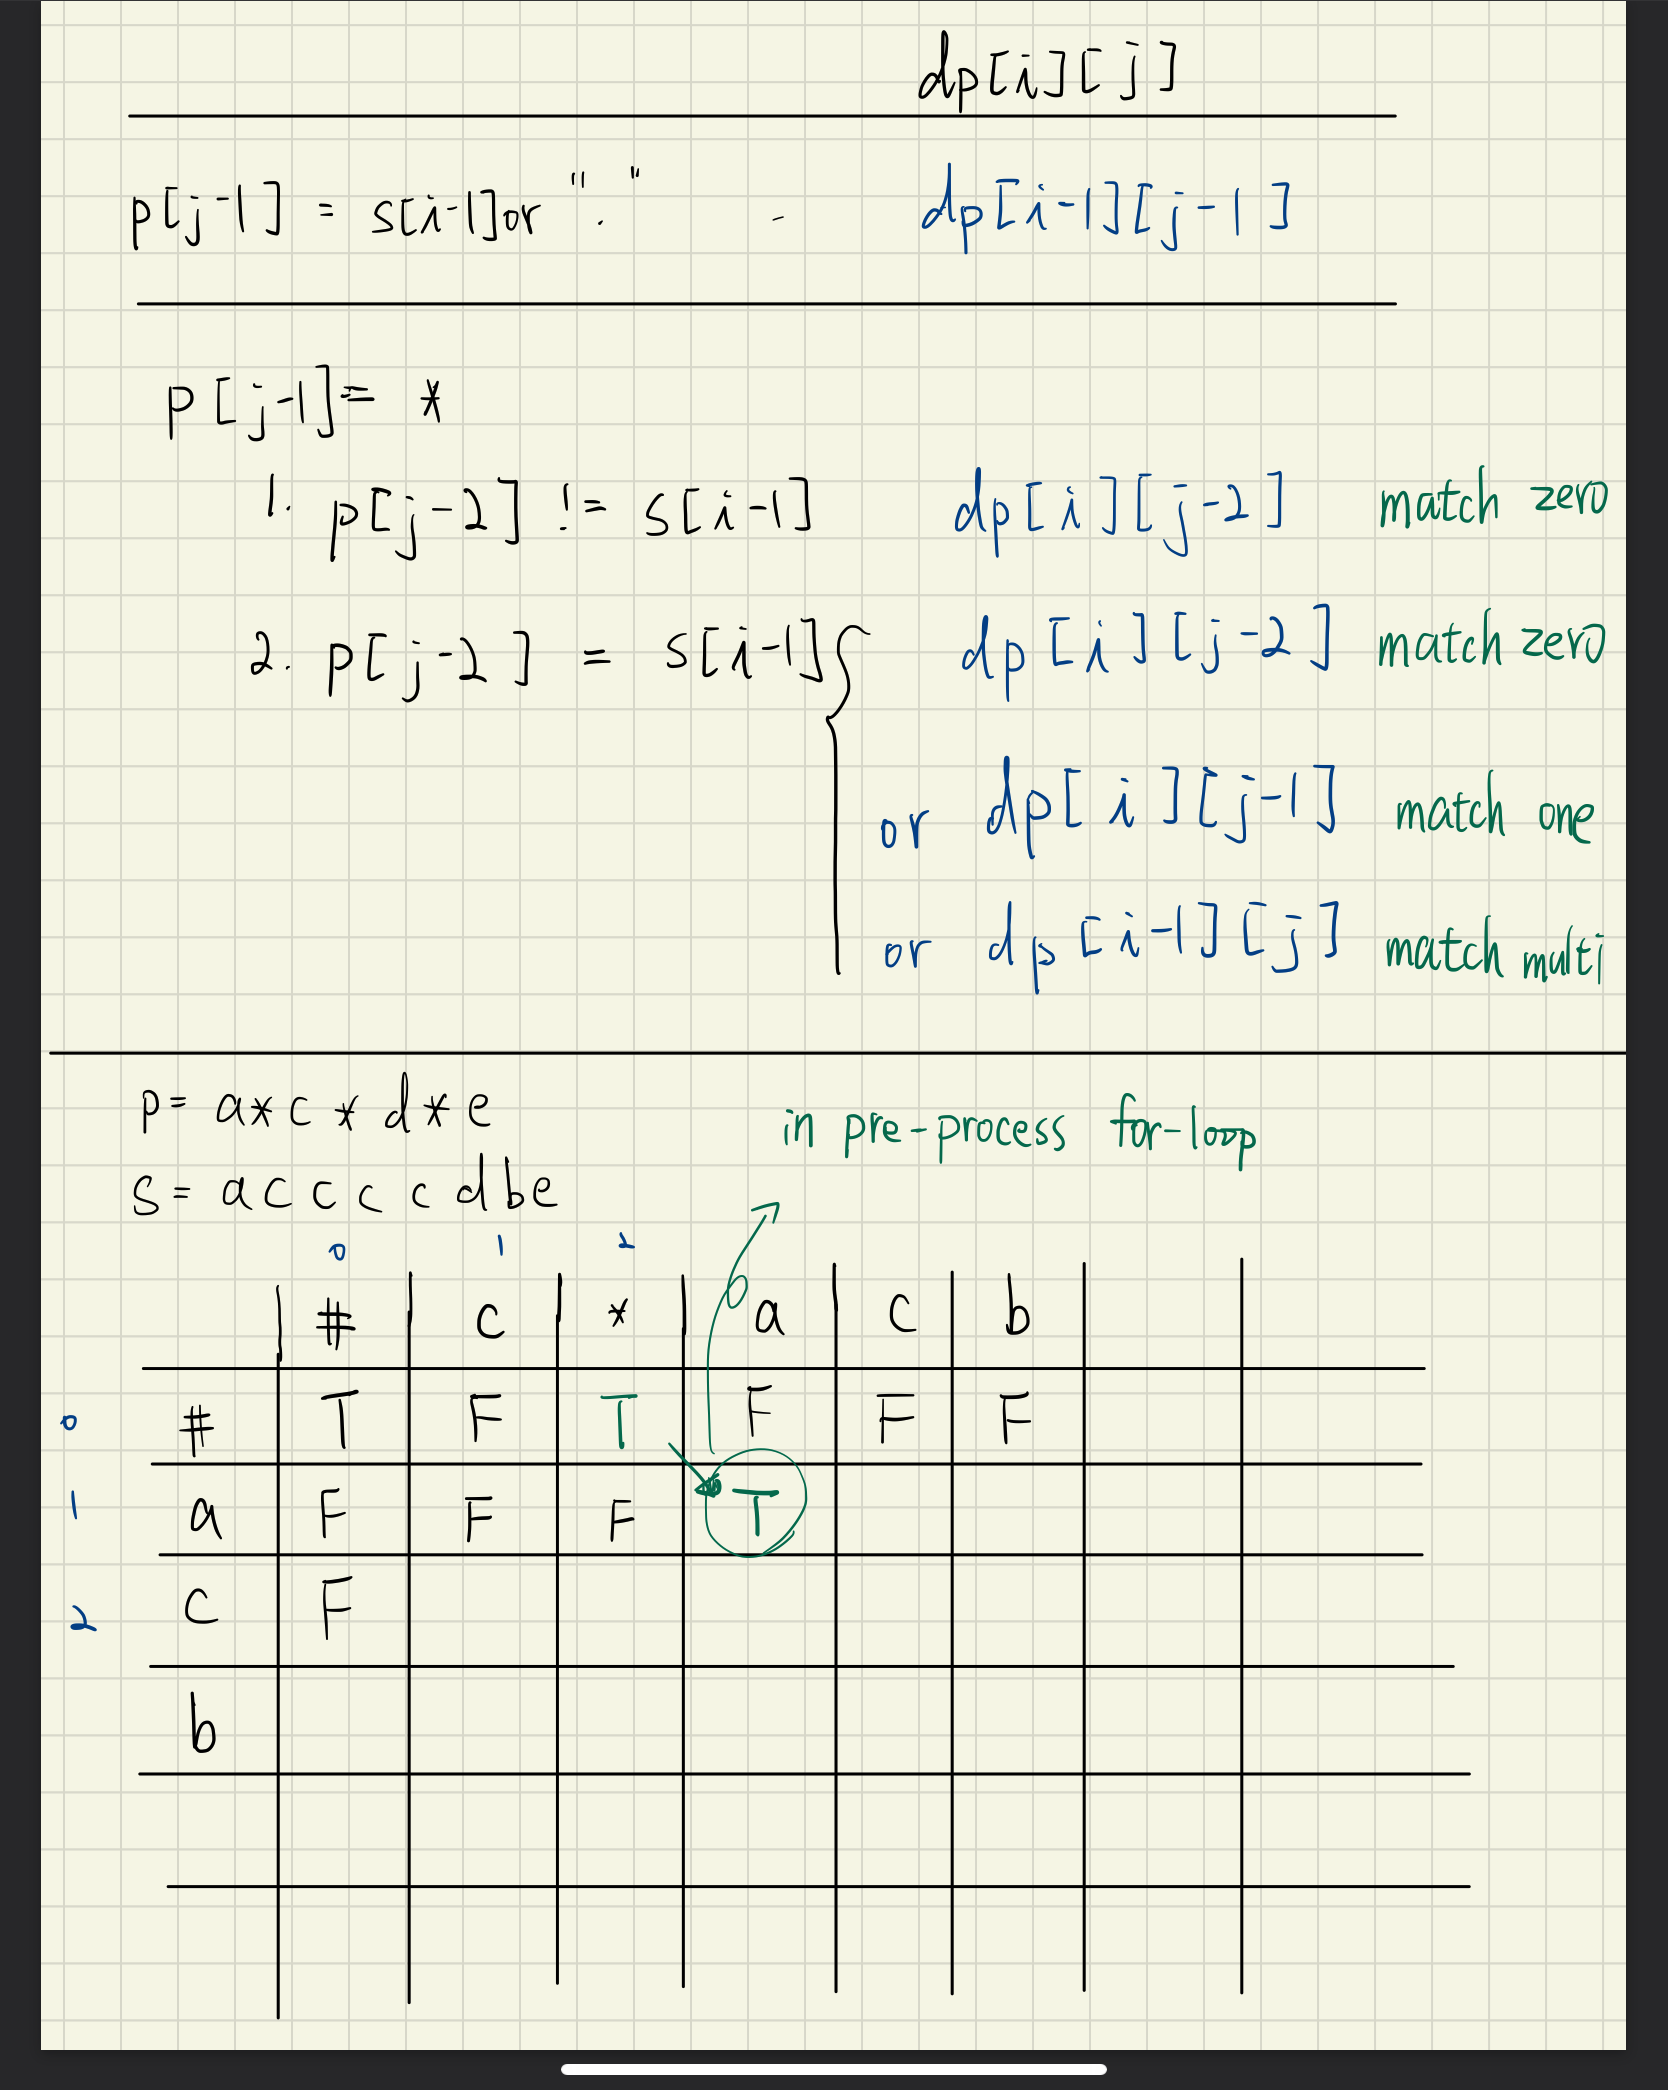 dp[i][j]
p[j-1] = s[i-1] or "." - dp[i-1][j-1]
p[j-1] = *
1. p[j-2] != s[i-1] dp[i][j-2] match zero
2. p[j-2] = s[i-1] { dp[i][j-2] match zero
or dp[i][j-1] match one
or dp[i-1][j] match multi
p= a*c*d*e
in pre-process for-loop
s= accccdbe
0 1 2
# c * a c b
0 # T F T F F F
1 a F F F T
2 c F
b